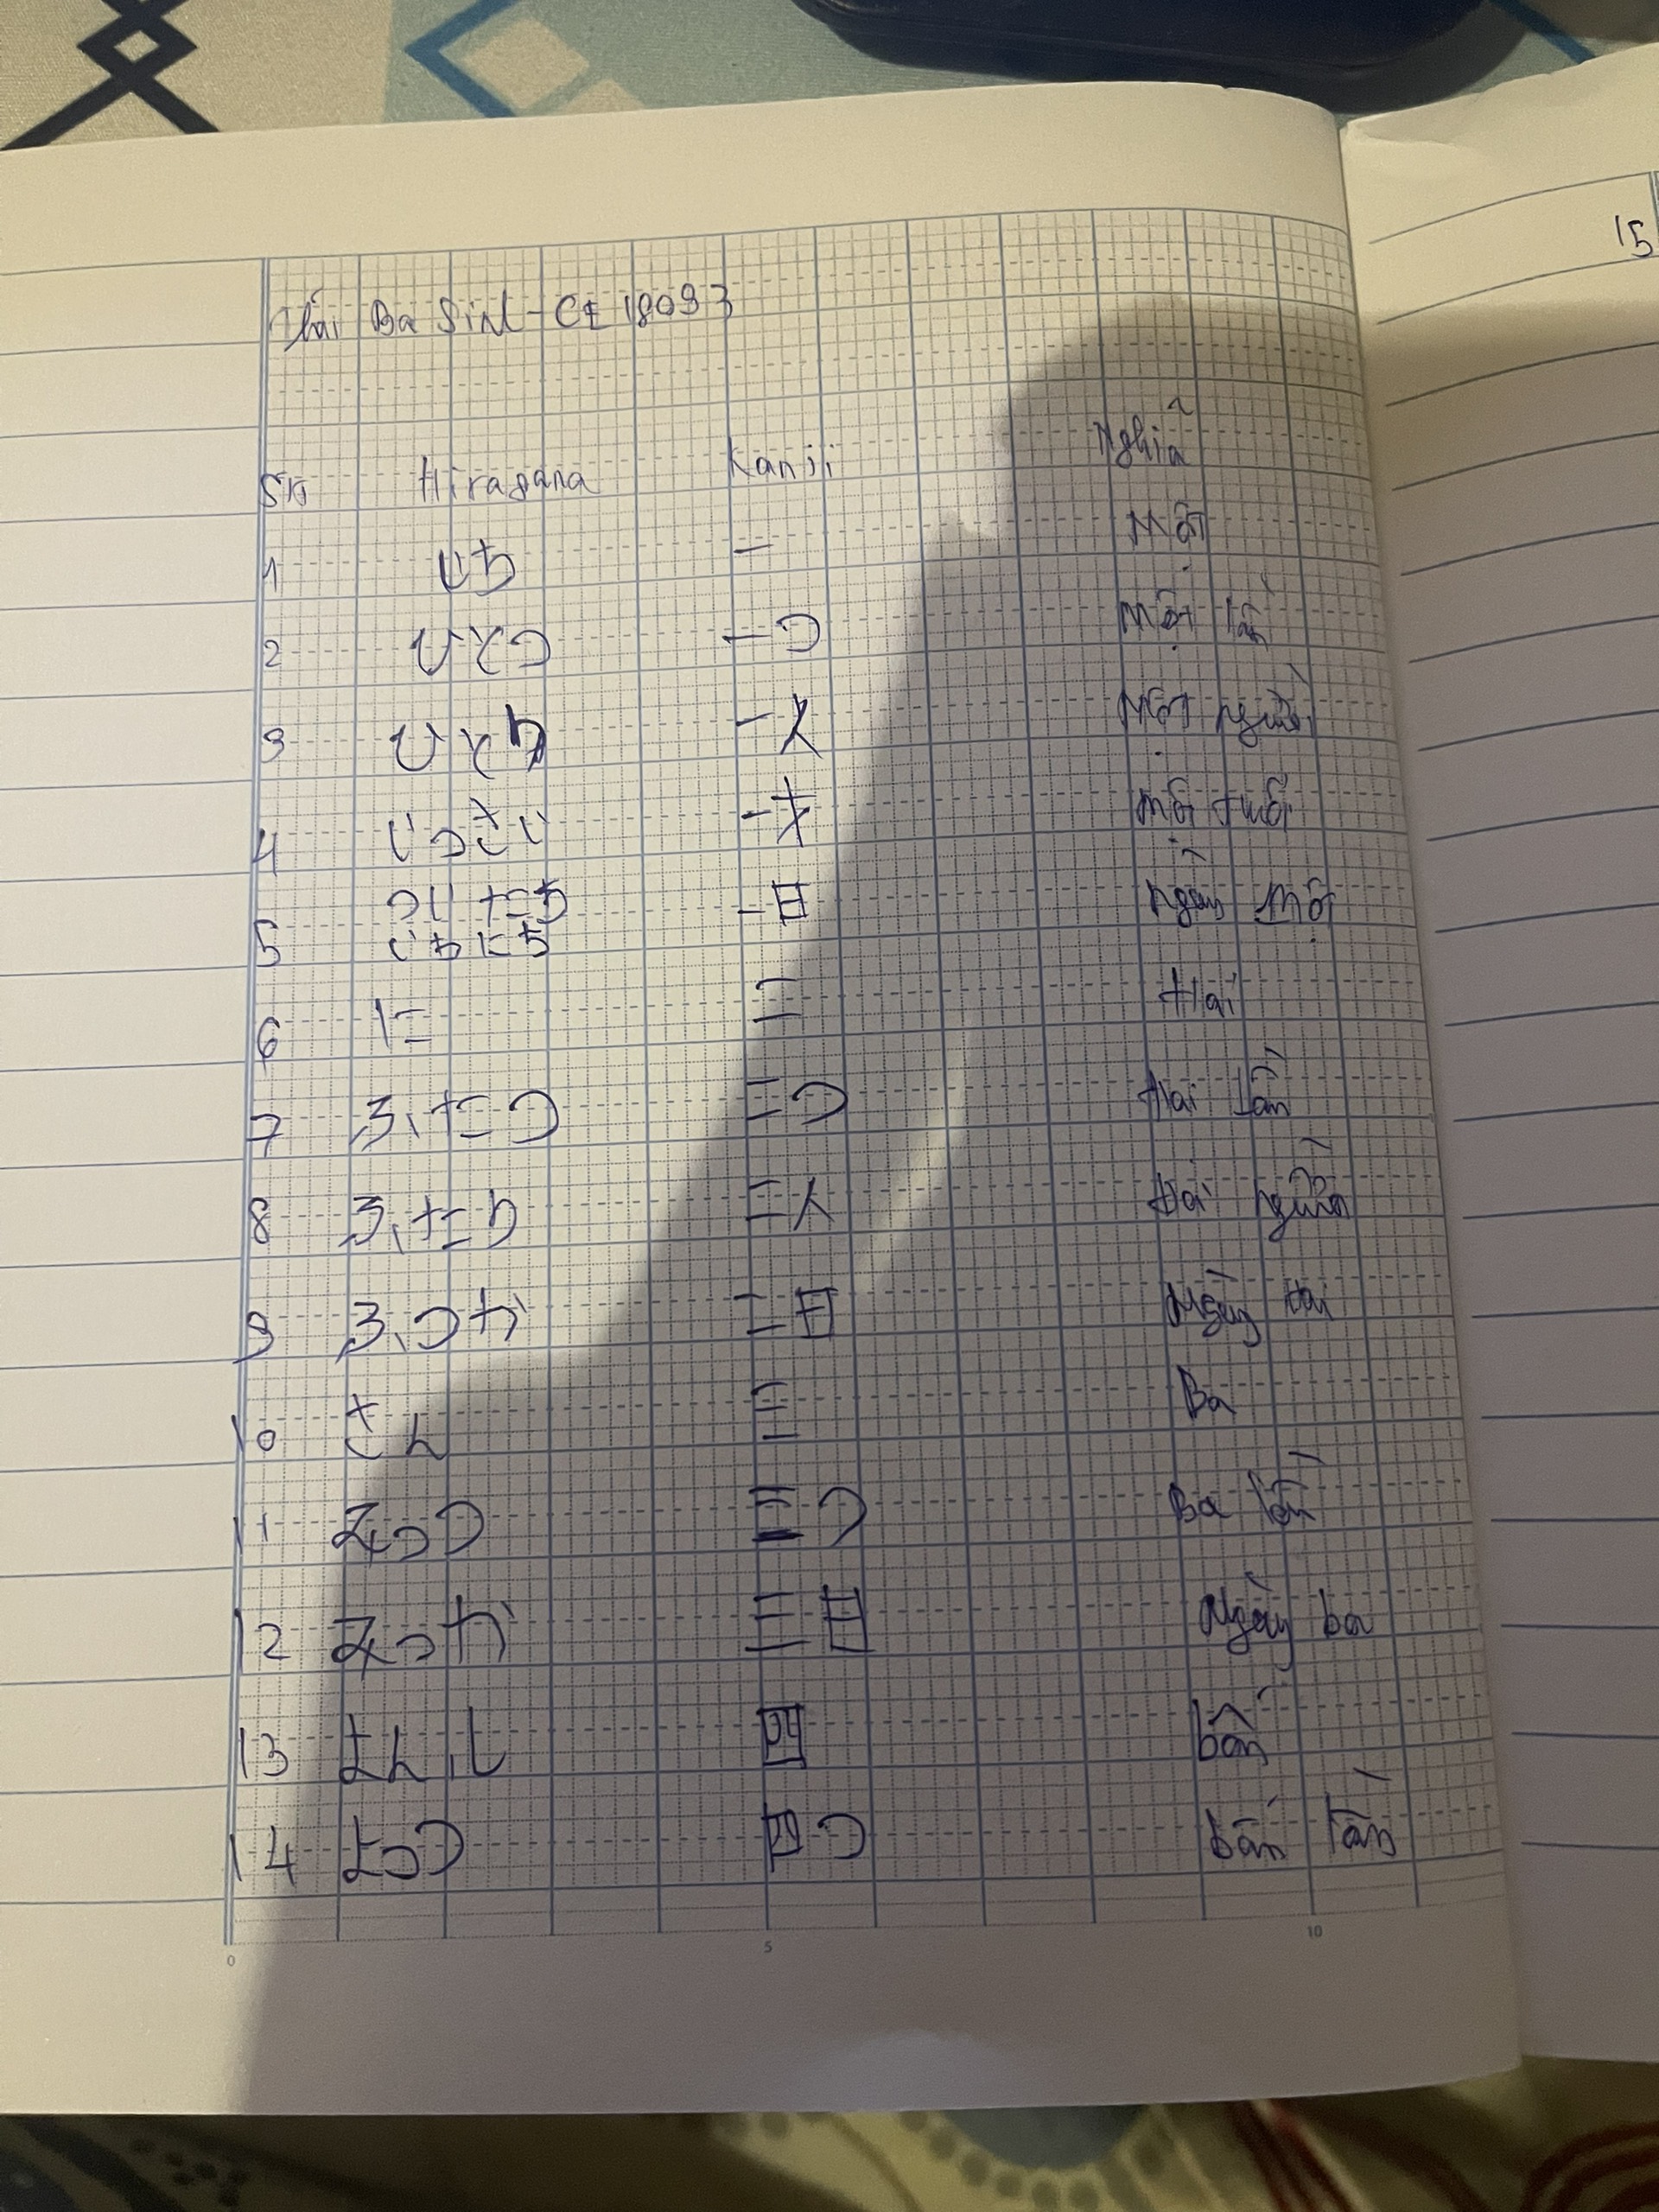 Thái Bá Sinh - CE 18093
Stt Hiragana Kanji Nghĩa
1 いち 一 Một
2 ひとつ 一つ Một lần
3 ひとり 一人 Một người
4 いっさい 一才 Một tuổi
5 ついたち 一日 ngày Một
いちにち
6 に 二 Hai
7 ふたつ 二つ Hai lần
8 ふたり 二人 Hai người
9 ふつか 二日 Ngày Hai
10 さん 三 Ba
11 みっつ 三つ Ba lần
12 みっか 三日 Ngày ba
13 よん,し 四 bốn
14 よっつ 四つ bốn lần
15
0 5 10